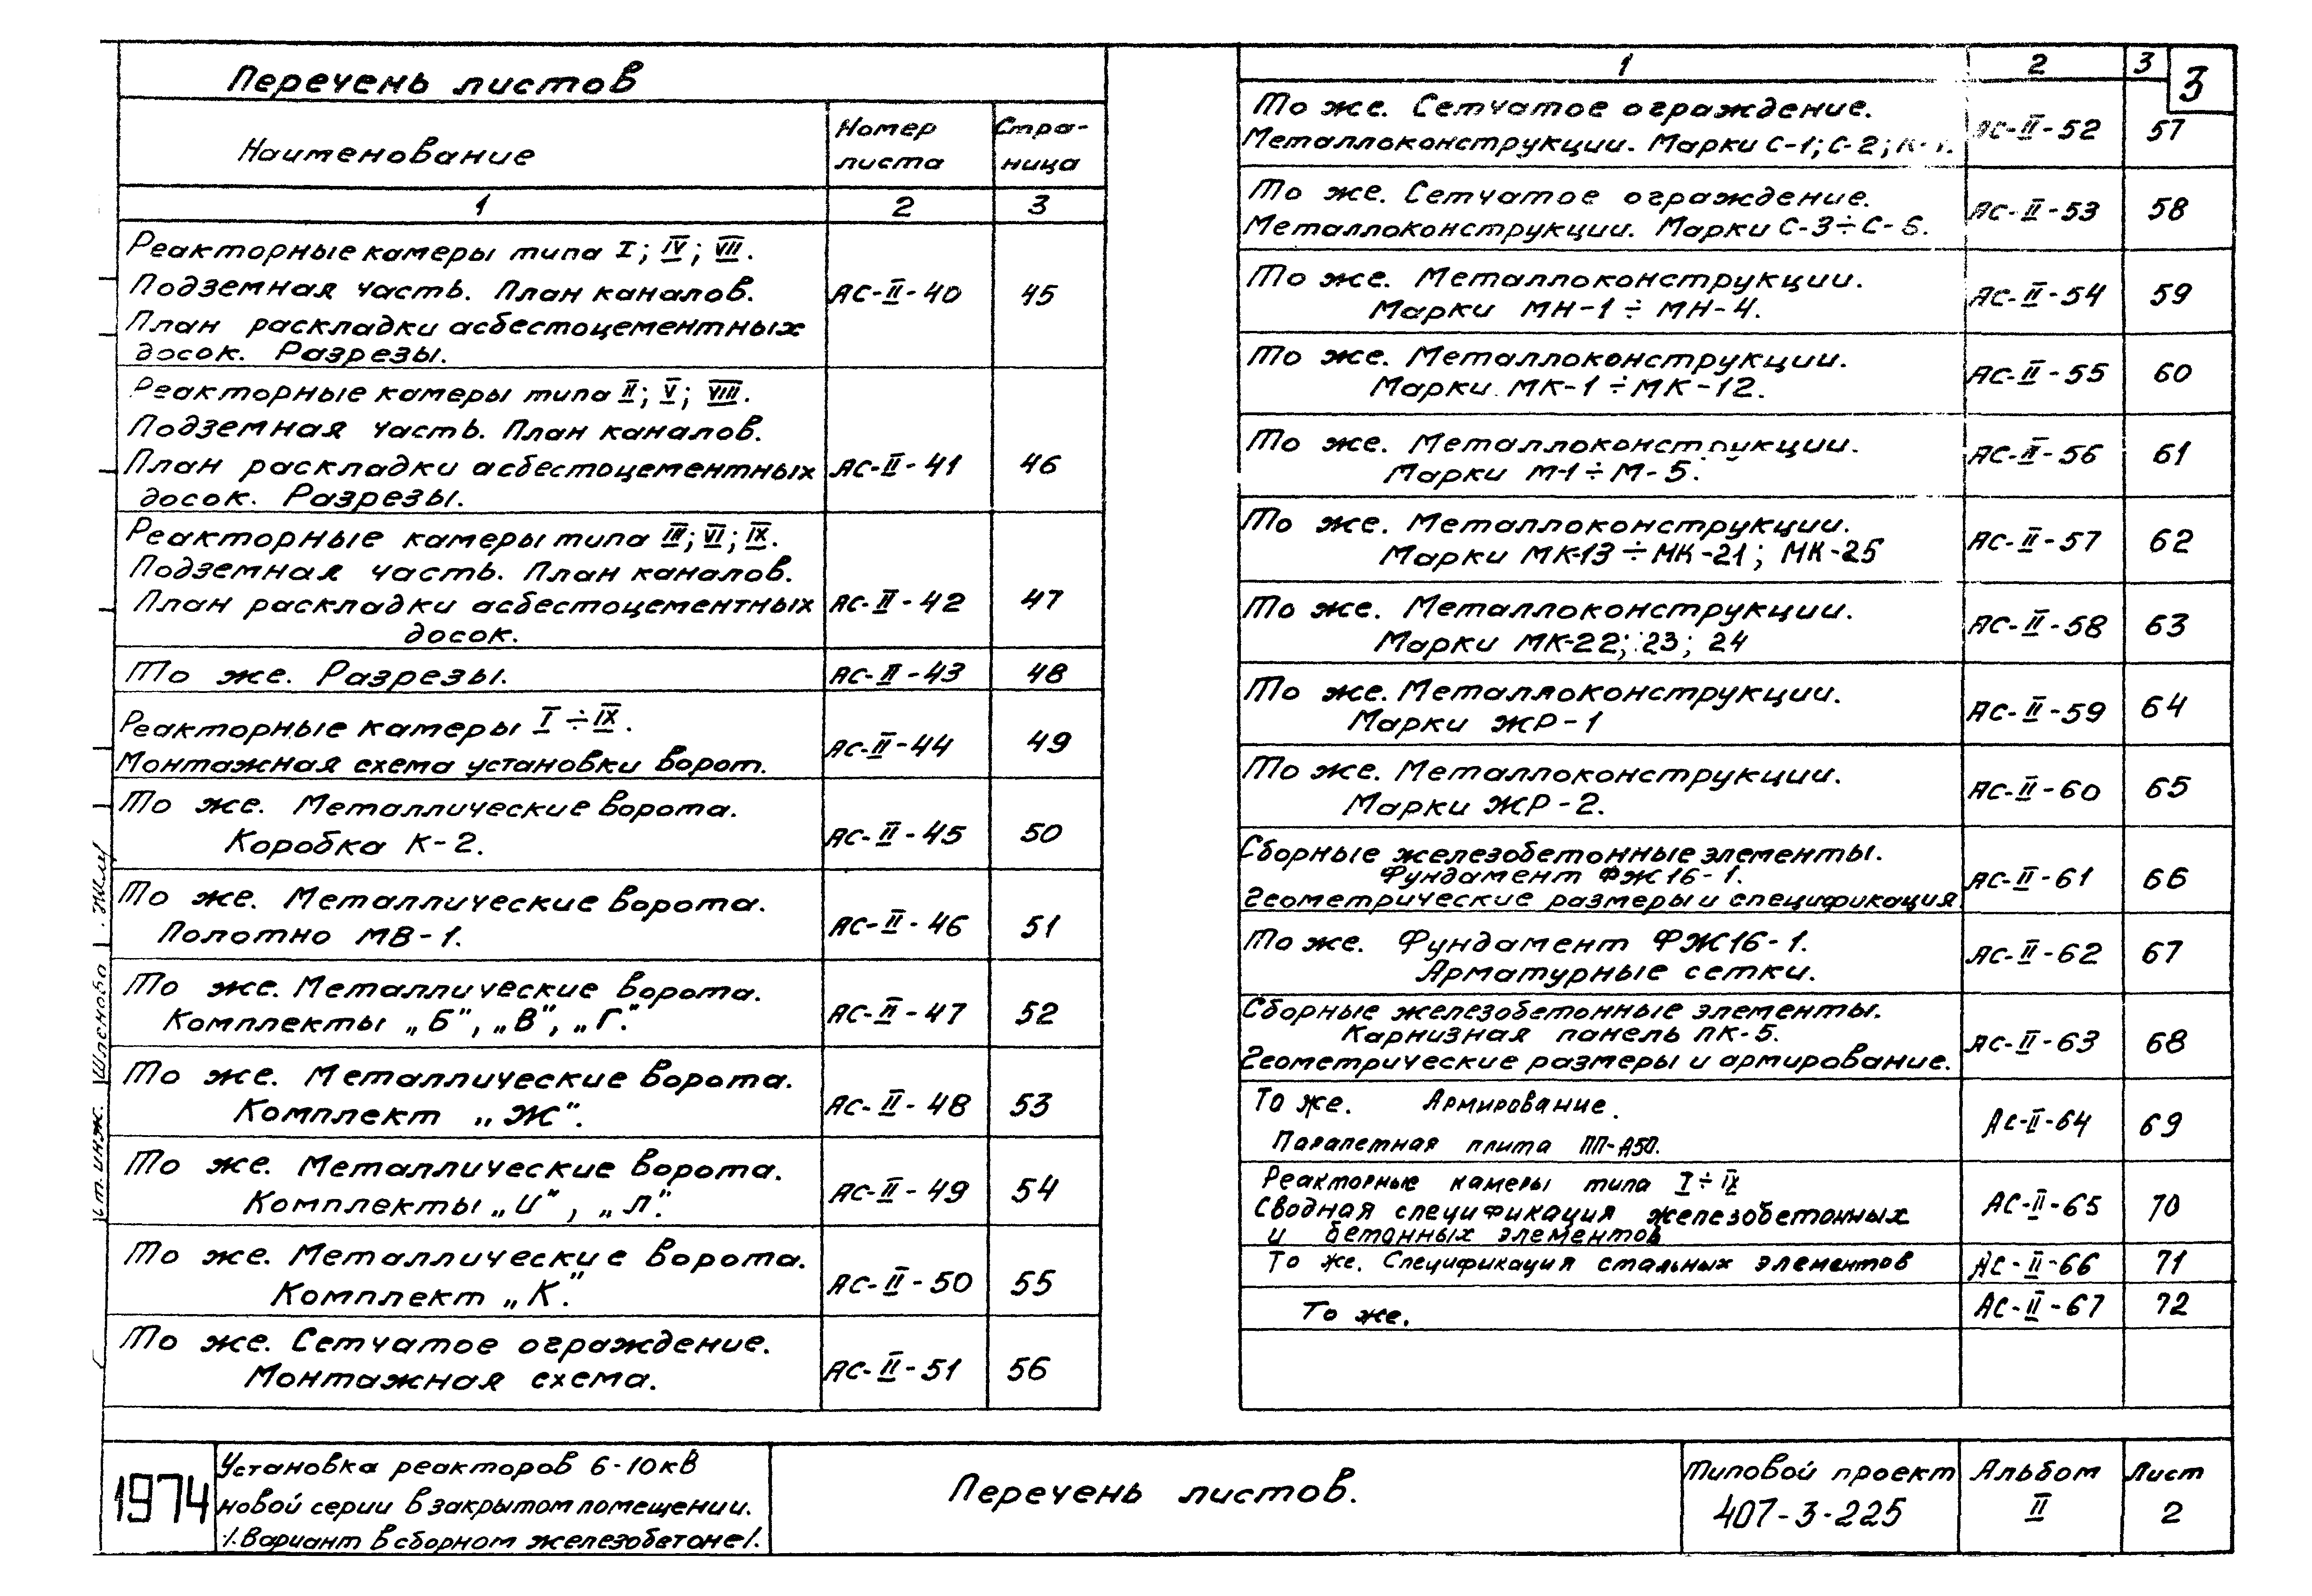 Перечень листов
Наименование
Номер листа
Стра-ница
1 2 3
Реакторные камеры типа I; IV; VII.
Подземная часть. План каналов.
План раскладки асбестоцементных
досок. Разрезы.
АС-II-40 45
Реакторные камеры типа II; V; VIII.
Подземная часть. План каналов.
План раскладки асбестоцементных
досок. Разрезы.
АС-II-41 46
Реакторные камеры типа III; VI; IX.
Подземная часть. План каналов.
План раскладки асбестоцементных
досок.
АС-II-42 47
То же. Разрезы. АС-II-43 48
Реакторные камеры I÷IX.
Монтажная схема установки ворот.
АС-II-44 49
То же. Металлические ворота.
Коробка К-2.
АС-II-45 50
То же. Металлические ворота.
Полотно МВ-1.
АС-II-46 51
То же. Металлические ворота.
Комплекты „Б", „В", „Г".
АС-II-47 52
То же. Металлические ворота.
Комплект „Ж".
АС-II-48 53
То же. Металлические ворота.
Комплекты „И", „Л".
АС-II-49 54
То же. Металлические ворота.
Комплект „К".
АС-II-50 55
То же. Сетчатое ограждение.
Монтажная схема.
АС-II-51 56
1 2 3
3
То же. Сетчатое ограждение.
Металлоконструкции. Марки С-1; С-2; К-1.
АС-II-52 57
То же. Сетчатое ограждение.
Металлоконструкции. Марки С-3÷С-6.
АС-II-53 58
То же. Металлоконструкции.
Марки МН-1÷МН-4.
АС-II-54 59
То же. Металлоконструкции.
Марки МК-1÷МК-12.
АС-II-55 60
То же. Металлоконструкции.
Марки М-1÷М-5.
АС-II-56 61
То же. Металлоконструкции.
Марки МК-13÷МК-21; МК-25
АС-II-57 62
То же. Металлоконструкции.
Марки МК-22; 23; 24
АС-II-58 63
То же. Металлоконструкции.
Марки ЖР-1
АС-II-59 64
То же. Металлоконструкции.
Марки ЖР-2.
АС-II-60 65
Сборные железобетонные элементы.
Фундамент ФЖ16-1.
Геометрические размеры и спецификация.
АС-II-61 66
То же. Фундамент ФЖ16-1.
Арматурные сетки.
АС-II-62 67
Сборные железобетонные элементы.
Карнизная панель ПК-5.
Геометрические размеры и армирование.
АС-II-63 68
То же. Армирование.
Парапетная плита ПП-А50.
АС-II-64 69
Реакторные камеры типа I÷IX
Сводная спецификация железобетонных
и бетонных элементов
АС-II-65 70
То же. Спецификация стальных элементов АС-II-66 71
То же. АС-II-67 72
ст. инж. Шленово
1974
Установка реакторов 6-10кВ
новой серии в закрытом помещении.
/.Вариант в сборном железобетоне/.
Перечень листов.
Типовой проект
407-3-225
Альбом
II
Лист
2